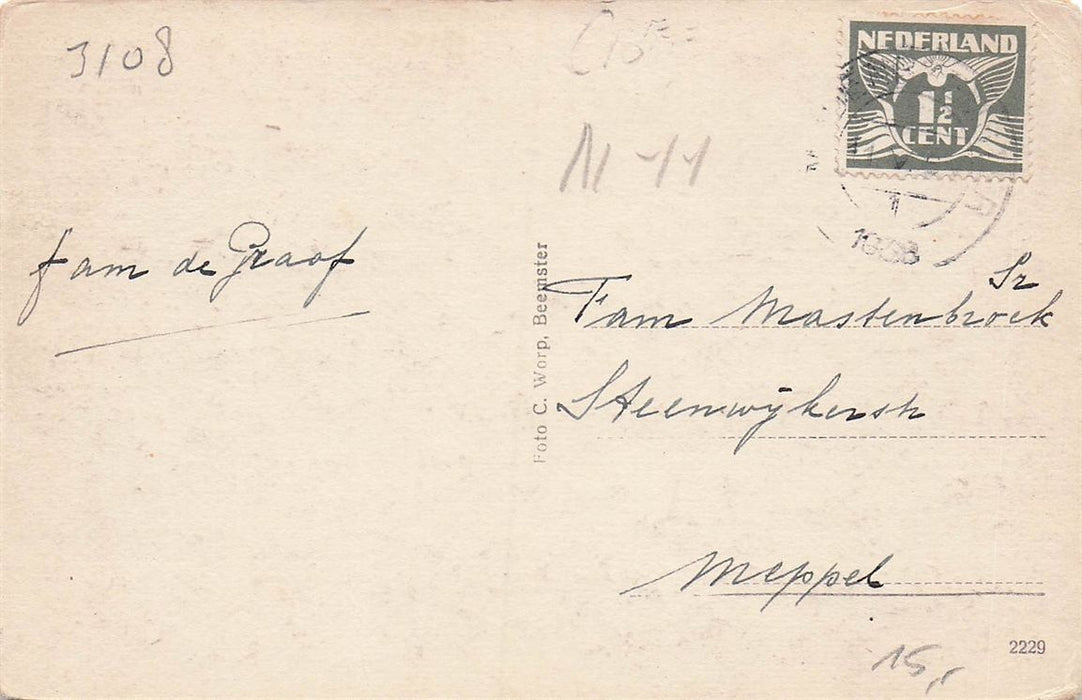 3108
NEDERLAND
1½
CENT
1
1938
N-11
fam de Graaf
Foto C. Worp, Beemster
Sr
Fam Mastenbroek
Steenwijkerstr
Meppel
2229
15,-